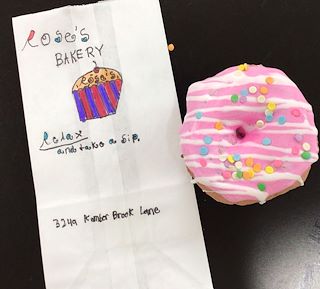 Rosa's
BAKERY
Rosa's
Relax
and take a sip.
3249 Kamber Brook Lane